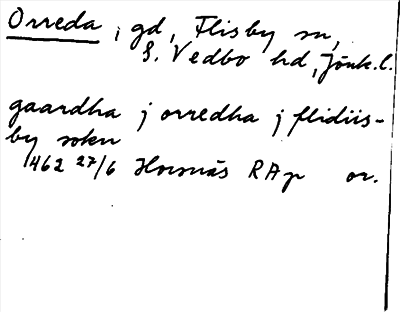 Orreda, gd, Flisby sn,
S. Vedbo hd, Jönk.l.
gaardha j orredha j flidiis-
by sokn
1462 27/6 Hornäs RAp or.